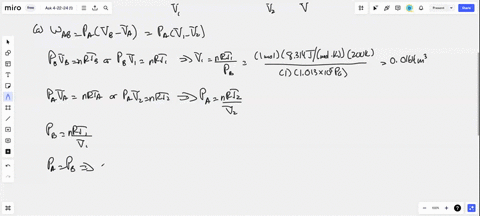 miro Ask 4-22-24 (1)
V₁ V₂ V
(a) W_AB = P_A (V_B - V_A) = P_A (V₁ - V₂)
P_B V_B = nRT_B or P_B V₁ = nRT₁ ⇒ V₁ = nRT₁/P_B = (1 mol)(8.314 J/(mol·K))(200K)/(1)(1.013×10⁵ Pa) = 0.0164 m³
P_A V_A = nRT_A or P_A V₂ = nRT₂ ⇒ P_A = nRT₂/V₂
P_B = nRT₁/V₁
P_A = P_B ⇒